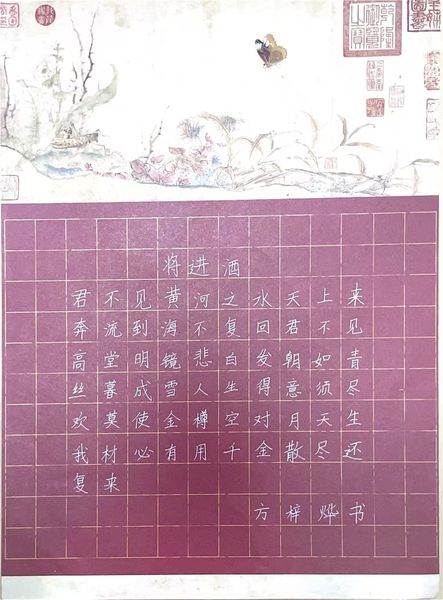 将进酒
君不见黄河之水天上来
奔流到海不复回君不见
高堂明镜悲白发朝如青
丝暮成雪人生得意须尽
欢莫使金樽空对月天生
我材必有用千金散尽还
复来
方梓烨书